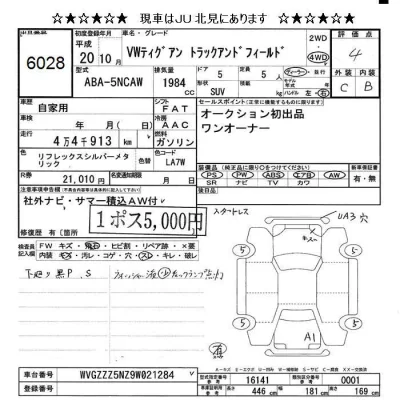 ☆★☆★☆★ 現車はJU北見にあります ☆★☆★☆★
出品番号 初度登録年月 車名・グレード 2WD 評価点
6028 平成 20 10月 VWティグアン トラックアンドフィールド 4WD 4
型式 排気量 ドア 定員 外装 内装
ABA-5NCAW 1984 5ドア 5人 ディーラー 並行 C B
形状 SUV ハンドル 左 右
車歴 自家用 シフト FAT セールスポイント(正常に機能するものに限ります)
冷房 AAC オークション初出品
走行 4万4千913km 燃料 ガソリン ワンオーナー
色 リフレックスシルバーメタリック 色コード LA7W
装備品 新車保証書
R券 21,010円 PS PW ABS エアB AW 有・無
SR ナビ TV カワ
注意事項申告
社外ナビ・サマー積込AW付
1ポス5,000円
修復歴 有(箇所
スタートレス
UA3 穴
検査員記入欄 FW キズ・飛石・ヒビ割・リペア跡・×要
内装 キズ・汚レ・コゲ・穴・スレ・キレ・破レ
下廻り黒P.S
5 5 5 5
A1
車台番号 WVGZZZ5NZ9W021284
登録番号
型式指定番号 16141 類別区分番号 0001
長さ 446cm 幅 181cm 高さ 169cm